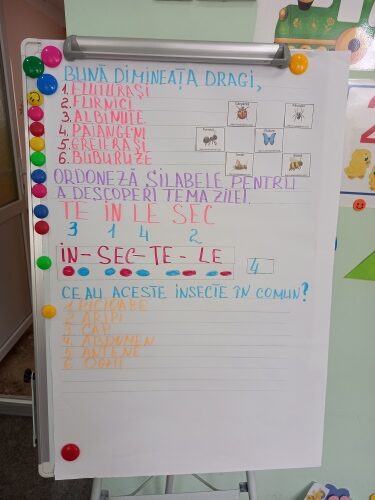 BUNĂ DIMINEAȚA DRAGI,
1. FLUTURAȘI
2. FURNICI
3. ALBINUȚE
4. PAIANGENI
5. GREIERAȘI
6. BUBURUZE
ORDONEZĂ SILABELE PENTRU
A DESCOPERI TEMA ZILEI.
TE IN LE SEC
3 1 4 2
IN-SEC-TE-LE
4
CE AU ACESTE INSECTE ÎN COMUN?
1 PICIOARE
2 ARIPI
3 CAP
4 ABDOMEN
5 ANTENE
6 OCHI